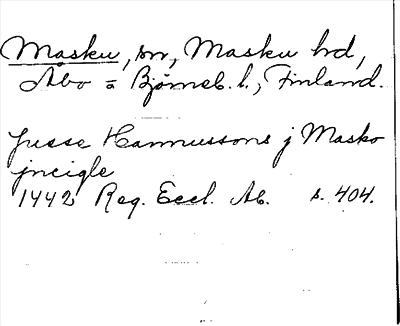 Masku, sn, Masku hd,
Åbo = Björneb. l., Finland.
Jusse Hannussons j Masko
jncigle
1442 Reg. Eccl. Ab. s. 404.